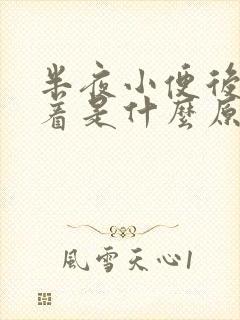 半夜小便後
着是什麼原
風雪天心1